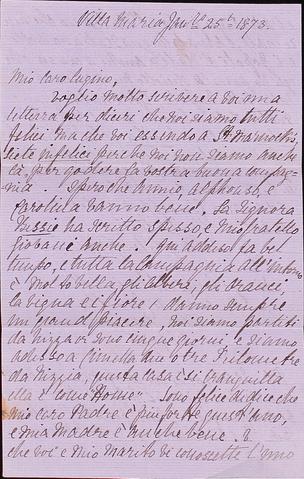 Villa Maria Jan. 25th 1873.
Mio caro cugino,
Voglio molto scrivere a voi una
lettera per dirvi che noi siamo tutti
felici ma che voi essendo a St
siete infelici perche noi non siamo anche
la, per godere la vostra buona compag-
nia. Spero che Annie, Alphonso, e
Carolina vanno bene. La Signora
ha scritto spesso e mio fratello
anche. Qui adesso fa bel
tempo, e tutta la campagnia all'intorno
è molto bella gli alberi, gli oranci
la vigna e i fiori danno sempre
un grand piacere, Noi siamo partiti
da Nizza vi sono cinque giorni e siamo
adesso a Cimella due o tre kilometre
da Nizzia, questa casa è si tranquilla
ella è come "Home". Sono felice di dice che
mio caro Padre è piu forte quest'ano,
e mia Madre è anche bene.
che voi e mio marito vi conoscette l'uno